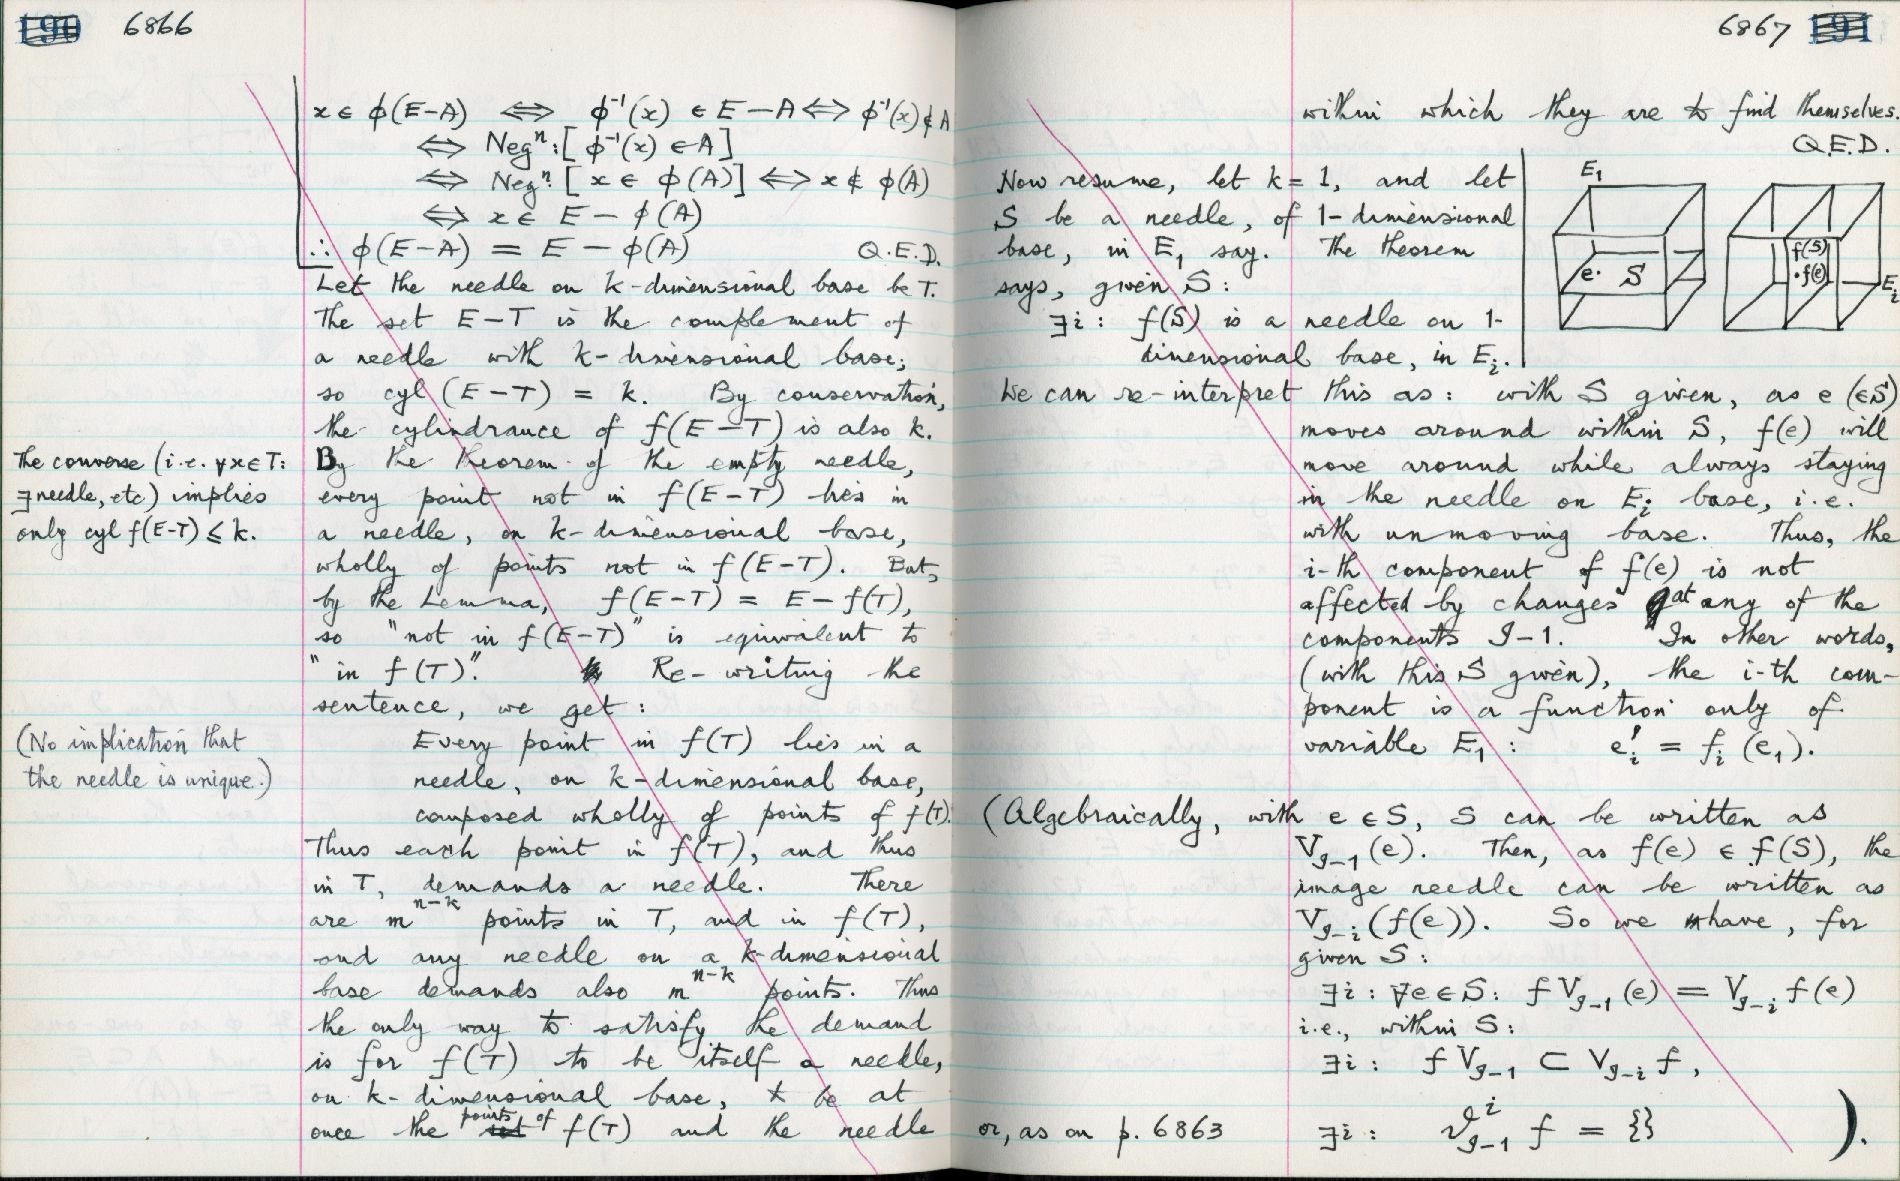 190 6866
x ∈ ϕ(E−A) ⇔ ϕ⁻¹(x) ∈ E − A ⇔ ϕ⁻¹(x) ∉ A
⇔ Negⁿ: [ ϕ⁻¹(x) ∈ A ]
⇔ Negⁿ: [ x ∈ ϕ(A) ] ⇔ x ∉ ϕ(A)
⇔ x ∈ E − ϕ(A)
∴ ϕ(E−A) = E − ϕ(A) Q.E.D.
Let the needle on k-dimensional base be T.
The set E−T is the complement of
a needle with k-dimensional base;
so cyl (E−T) = k. By conservation,
the cylindrance of f(E−T) is also k.
By the theorem of the empty needle,
every point not in f(E−T) lies in
a needle, on k-dimensional base,
wholly of points not in f(E−T). But,
by the Lemma, f(E−T) = E − f(T),
so "not in f(E−T)" is equivalent to
"in f(T)." Re-writing the
sentence, we get:
Every point in f(T) lies in a
needle, on k-dimensional base,
composed wholly of points of f(T).
Thus each point in f(T), and thus
in T, demands a needle. There
are mⁿ⁻ᵏ points in T, and in f(T),
and any needle on a k-dimensional
base demands also mⁿ⁻ᵏ points. Thus
the only way to satisfy the demand
is for f(T) to be itself a needle,
on k-dimensional base, & be at
once the points of f(T) and the needle
The converse (i.e. ∀x∈T:
∃needle, etc) implies
only cyl f(E−T) ≤ k.
(No implication that
the needle is unique.)
6867 191
within which they are to find themselves.
Q.E.D.
Now resume, let k = 1, and let
S be a needle, of 1-dimensional
base, in E₁ say. The theorem
says, given S:
∃i: f(S) is a needle on 1-
dimensional base, in Eᵢ.
E₁
e. S
f(S)
.f(e)
Eᵢ
We can re-interpret this as: with S given, as e (∈S)
moves around within S, f(e) will
move around while always staying
in the needle on Eᵢ base, i.e.
with unmoving base. Thus, the
i-th component of f(e) is not
affected by changes at any of the
components I−1. In other words,
(with this S given), the i-th com-
ponent is a function only of
variable E₁: e'ᵢ = fᵢ (e₁).
(Algebraically, with e ∈ S, S can be written as
V_{I−1}(e). Then, as f(e) ∈ f(S), the
image needle can be written as
V_{I−i}(f(e)). So we have, for
given S:
∃i: ∀e∈S: f V_{I−1}(e) = V_{I−i} f(e)
i.e., within S:
∃i: f V_{I−1} ⊂ V_{I−i} f,
or, as on p. 6863 ∃i: 𝒱ⁱ_{I−1} f = {} ).